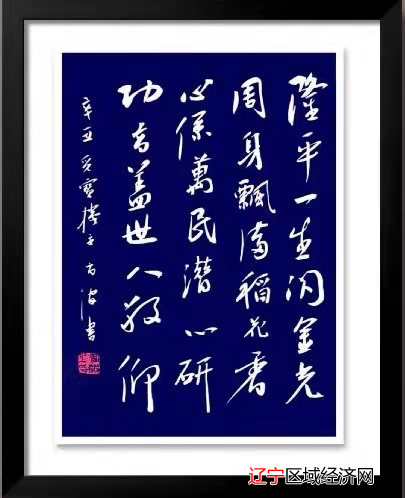 隆平一生闪金光
周身飄满稻花香
心係萬民潜心研
功高盖世人敬仰
辛丑
书
辽宁区域经济网